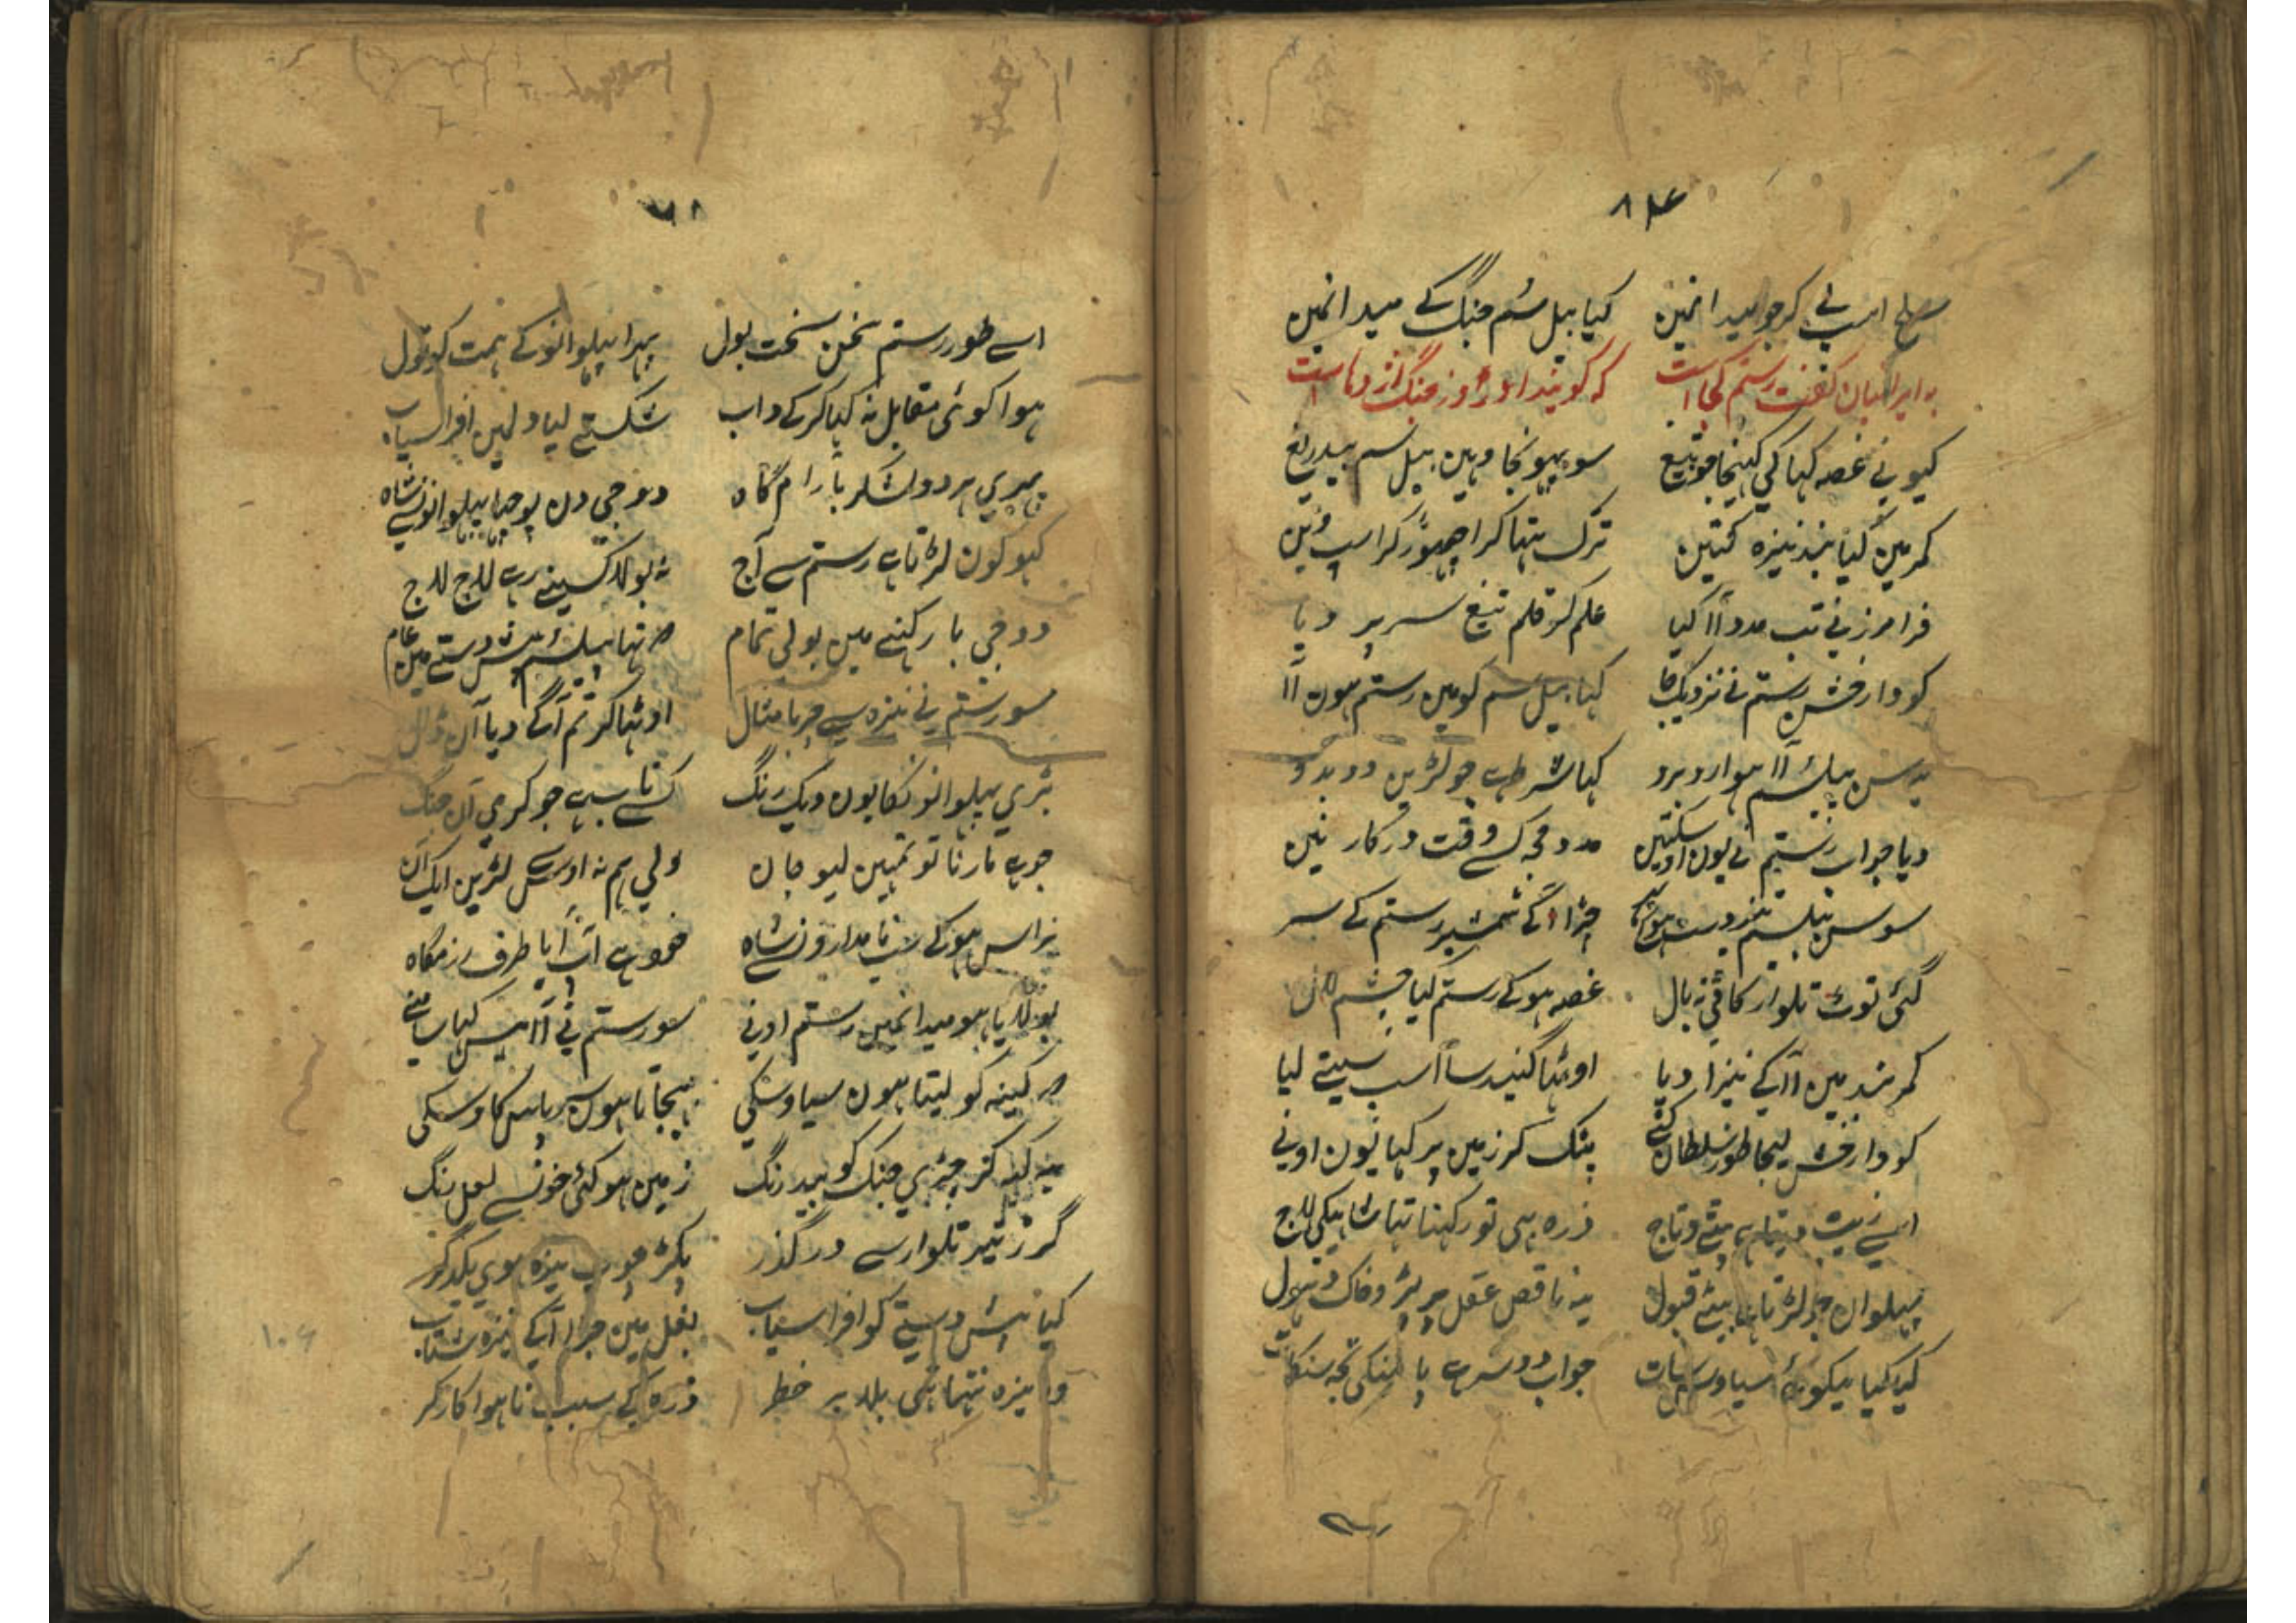 سلح اسپ لے کر جو میدانمیں کیا پیل سُم جنگ کے میدانمیں
به ایرانیان گفت رستم کجا است که گویند او روز جنگ اژدها است
کیو نے غصہ کہا کی کہینچا جو تیغ سو پہونچا وہیں پیل سم بیدریغ
کمر میں کیا بند نیزہ کتیں ترک تہا کرا چھوڑ کر اسپ وئیں
فرامرز نے تب مدد اا کیا علم کر قلم تیغ سر پر دیا
کودار فش رستم نے نزدیک جا کہا پیل سم کو میں رستم ہوں اا
یہ سن پیلسم اا ہوا روبرو کہا شرط ہے جو لڑیں دو بدو
دیا جواب رستم نے یوں اوسکتیں مدد مجہ کسے وقت درکار نیں
سو سن پیلسم تیز دست جڑا اگے شمشیر رستم کے سر
گئی توٹ تلوار کاٹی نہ بال غصہ ہو کے رستم کیا چشم لال
کمربند میں اا کے نیزا دیا اوٹہا گیند سا اسپ سیتے لیا
کودار فش لیجا طور سلطان کنے پٹک کر زمیں پر کہا یوں اونے
اسے زیت دیتا ہے بیٹے و تاج ذرہ بہی تو رکہنا تہا شاہیکی لاج
پہلوان جو لڑتا ہے بیٹے قبول یہ ناقص عقل پر پڑو خاک و دہول
کہا سیاوس بات جواب دوسرے
۷۸
اسے طور رستم سخن سخت بول پہرا پہلوانو کے ہمت کو تول
ہوا کوئی مقابل نہ کیا کر کے داب شکستے لیا دلمیں افراسیاب
پہری ہر دو لشکر بارام گاہ دوجی دن پوچہا پہلوانونسے شاہ
کہو کون لڑتا ہے رستم سے آج نہ بولا کسینے رہے لاج لاج
دوجی بار کہنے میں بولی تمام تہا پیلسم پیش دستے میں عام
سو رستم نے نیزہ سے چڑیا مثال اوٹہا کر تم آگے دیا آن ڈال
بڑی پہلوانونکا یوں دیک رنگ کسے تاب ہے جو کرے آن جنگ
جو ہے مارنا تو تمہیں لیو جان ولی ہم نہ اوسسے لڑیں ایک آن
ہراس ہو کے سب نامدارونسے شاہ خود ہے اب آیا طرف رزمگاہ
بولایا ہو میدانمیں رستم اونے سو رستم نے اا میں کہا سامنے
کینہ کو لیتا ہوں سیاوسکی بہیجاتا ہوں سر پاس کاوسکی
یہ کہہ کر چڑی جنگ کو بیدرنگ زمیں ہو گئی خونسے لعل رنگ
گرز تیر تلوار سے در گذر پکڑ چوب نیزہ ہوی یکدگر
کیا پیش دستے کو افراسیاب بغل میں جڑا آکے نیزہ شتاب
و نیزہ نتہا تہی بلا پر خطر ذرہ کے سبب نا ہوا کارگر
۱۰۶